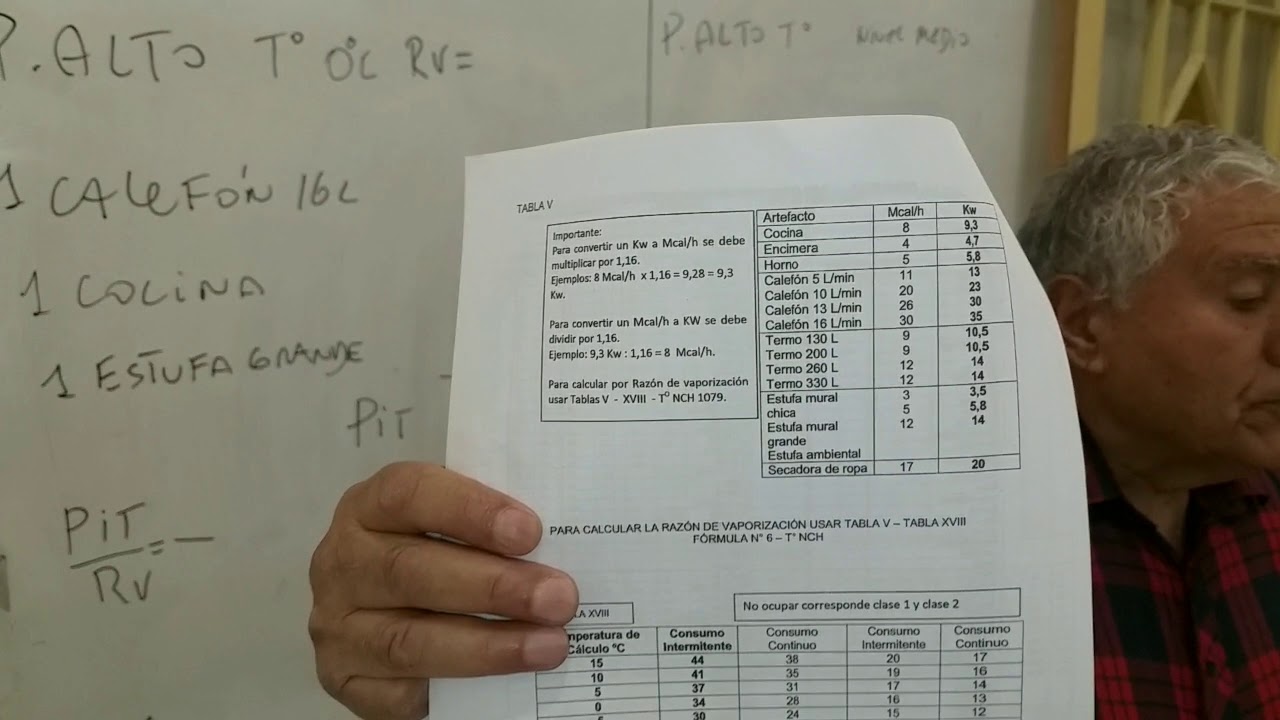 P. ALTO T° 0°C RV=
1 CALEFÓN 16L
1 COCINA
1 ESTUFA GRANDE
PiT
PiT
RV
= —
P. ALTO T° NIVEL MEDIO
TABLA V
Importante:
Para convertir un Kw a Mcal/h se debe
multiplicar por 1,16.
Ejemplos: 8 Mcal/h x 1,16 = 9,28 = 9,3
Kw.
Para convertir un Mcal/h a KW se debe
dividir por 1,16.
Ejemplo: 9,3 Kw : 1,16 = 8 Mcal/h.
Para calcular por Razón de vaporización
usar Tablas V - XVIII - T° NCH 1079.
Artefacto Mcal/h Kw
Cocina 8 9,3
Encimera 4 4,7
Horno 5 5,8
Calefón 5 L/min 11 13
Calefón 10 L/min 20 23
Calefón 13 L/min 26 30
Calefón 16 L/min 30 35
Termo 130 L 9 10,5
Termo 200 L 9 10,5
Termo 260 L 12 14
Termo 330 L 12 14
Estufa mural 3 3,5
chica 5 5,8
Estufa mural 12 14
grande
Estufa ambiental
Secadora de ropa 17 20
PARA CALCULAR LA RAZÓN DE VAPORIZACIÓN USAR TABLA V – TABLA XVIII
FÓRMULA N° 6 – T° NCH
LA XVIII
No ocupar corresponde clase 1 y clase 2
mperatura de Consumo Consumo Consumo Consumo
Cálculo ºC Intermitente Continuo Intermitente Continuo
15 44 38 20 17
10 41 35 19 16
5 37 31 17 14
0 34 28 16 13
-5 30 24 15 12